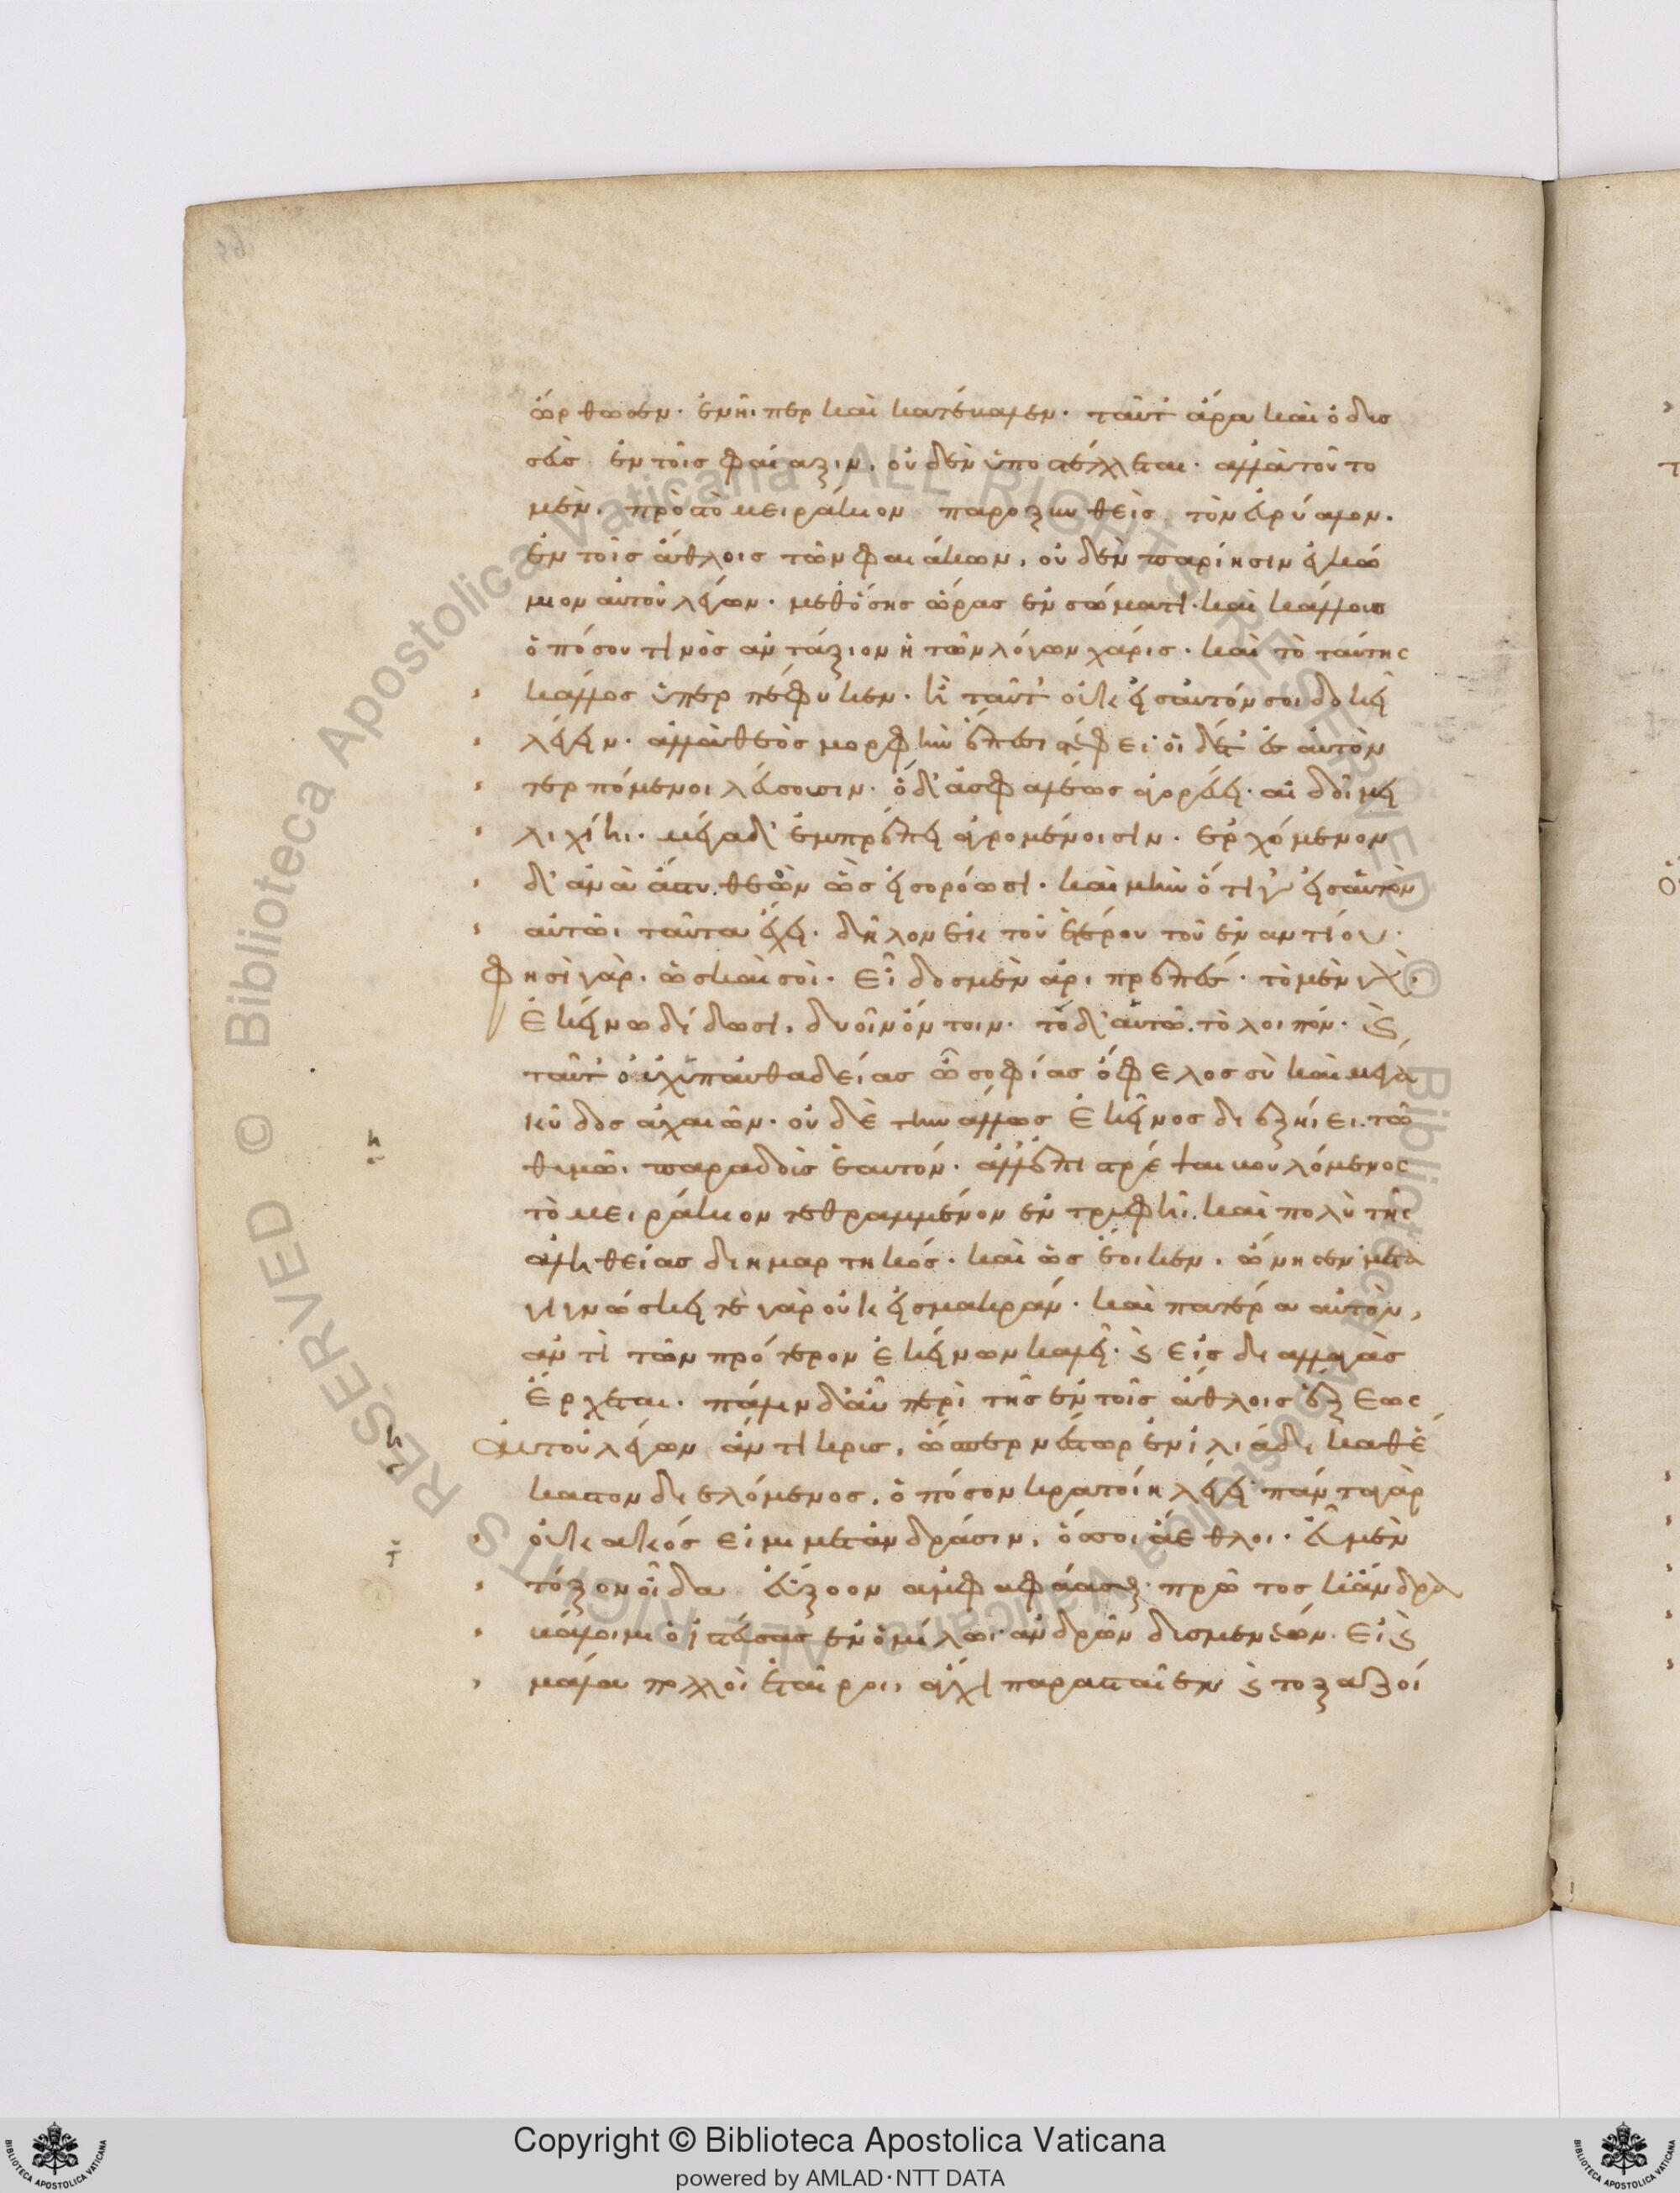 ὤρθωσεν. ἐν ᾗ περ καὶ κατέβαλεν. ταῦτ' ἄρα καὶ ὁ δυσ
σεὺς ἐν τοῖς φαίαξιν, οὐδὲν ὑποστέλλεται. ἀλλὰ τοῦτο
μὲν, πρὸς τὸ μειράκιον παροξυνθεὶς τὸν εὐρύαλον.
ἐν τοῖς ἄθλοις τῶν φαιάκων, οὐδὲν παρίησιν ἐγκώ
μιον αὑτοῦ λέγων. μεθόσης ὥρας ἐν σώματι. καὶ κάλλους
ὁπόσου τινὸς ἀντάξιον ἡ τῶν λόγων χάρις. καὶ τὸ ταύτης
κάλλος ὑπερπέφυκεν. καὶ ταῦτ' οὐκ εἰς αὐτόν σοι δοκεῖ
λέγειν. ἀλλὰ θεὸς μορφὴν ἔπεσι στέφει· οἱ δέ τ' ἐς αὐτὸν
τερπόμενοι λεύσουσιν. ὁ δ' ἀσφαλέως ἀγορεύει. αἰδοῖ μει
λιχίηι. μέγα δ' ἐμπρέπει ἀγρομένοισιν. ἐρχόμενον
δ' ἀνὰ ἄστυ. θεὸν ὣς εἰσορόωσι. καὶ μὴν ὅτι γ' εἰς αὑτὸν
αὐτῶι ταῦτα ἔχει. δῆλον ἐκ τοῦ ἑτέρου τοῦ ἐναντίου.
φησὶ γάρ. ὡς καὶ σοὶ. εἶδος μὲν ἀριπρεπές. τὸ μὲν
ἐκείνω δίδωσι, δυοῖν ὄντοιν. τὸ δ' αὑτῶ. τὸ λοιπόν. καὶ
ταῦτ' οὐχ ὑπ' αὐθαδείας ὦ σοφίας ὄφελος σὺ καὶ μέγα
κῦδος ἀχαιῶν. οὐδὲ τὴν ἄλλως ἐκεῖνος διεξήιει. τῶ
θυμῶ. παραδοὺς ἑαυτόν. ἀλλ' ἐπιστρέψαι βουλόμενος
τὸ μειράκιον τεθραμμένον ἐν τρυφῆι. καὶ πολὺ τῆς
ἀληθείας διημαρτηκός. καὶ ὡς ἔοικεν, ὤνησεν μετα
γινώσκει τε γὰρ οὐκ εἰς μακράν. καὶ πατέρα αὐτὸν,
ἀντὶ τῶν πρότερον ἐκείνων καλεῖ. καὶ εἰς διαλλαγὰς
ἔρχεται. πάλιν δ' αὖ περὶ τῆς ἐν τοῖς ἄθλοις ἕξεως
αὐτοῦ λέγων ἄντικρυς, ὥσπερ νέστωρ ἐν ἰλιάδι, καθ' ἕ
καστον διελόμενος, ὁπόσον κρατοίη λέγει· πάντα γὰρ
οὐ κακός εἰμι μετ' ἀνδράσιν, ὅσσοι ἄεθλοι. εὖ μὲν
τόξον οἶδα ἐύξοον ἀμφαφάασθαι. πρῶτος κ' ἄνδρα
βάλοιμι ὀιστεύσας ἐν ὁμίλωι ἀνδρῶν δυσμενέων. εἰ καὶ
μάλα πολλοὶ ἑταῖροι, ἄγχι παρασταῖεν καὶ τοξαζοί